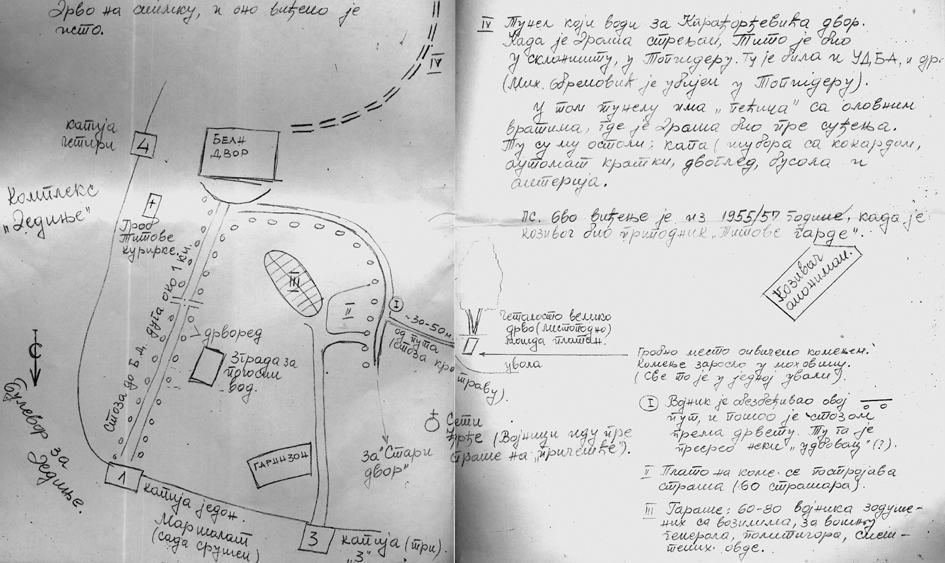 Дрво на слику, и оно виђено је
исто.
IV
капија
четири
4
БЕЛИ
ДВОР
Комплекс
„Дедиње"
Гроб
Титове
курирке.
Стаза до Б.Д. дуга око 1 км.
III
II
I
~30-50 м.
од пута
(стаза кроз
траву).
дрворед
Зграда за
прогон
вод.
С
Булевар за
Дедиње.
ГАРНИЗОН
за „Стари
двор"
1
капија један.
Маршалат
(сада срушен)
3
капија (три).
„3"
IV Тунел који води за Карађорђевића двор.
Када је Драша стрељан, Тито је био
у склоништу, у Топчидеру. Ту је била и УДБА, и др.
(Мих. Обреновић је убијен у Топчидеру).
У том тунелу има „ћелија" са оловним
вратима, где је Дража био пре суђења.
Ту су му остали: капа (шубара са кокардом,
аутомат кратки, двоглед, бусола и
батерија.
ПС. Ово виђење је из 1955/57 године, када је
казивач био припадник „Титове гарде"..
Казивач
анониман.
Четинасто велико
дрво (листопадно)
можда платан.
увала
Гробно место оивичено камењем.
Камење зарасло у маховину.
(Све то је у једној ували).
I Војник је обезбеђивао овај
пут, и пошао је стазом
према дрвету. Ту га је
пресрео неки „удбовац" (?).
Сети
(Војници иду пре
страже на „причешће").
II Плато на коме се постројава
стража (60 стражара).
III Гараже: 60-80 војника задуже-
них са возилима, за вожњу
генерала, политичара,
овде.